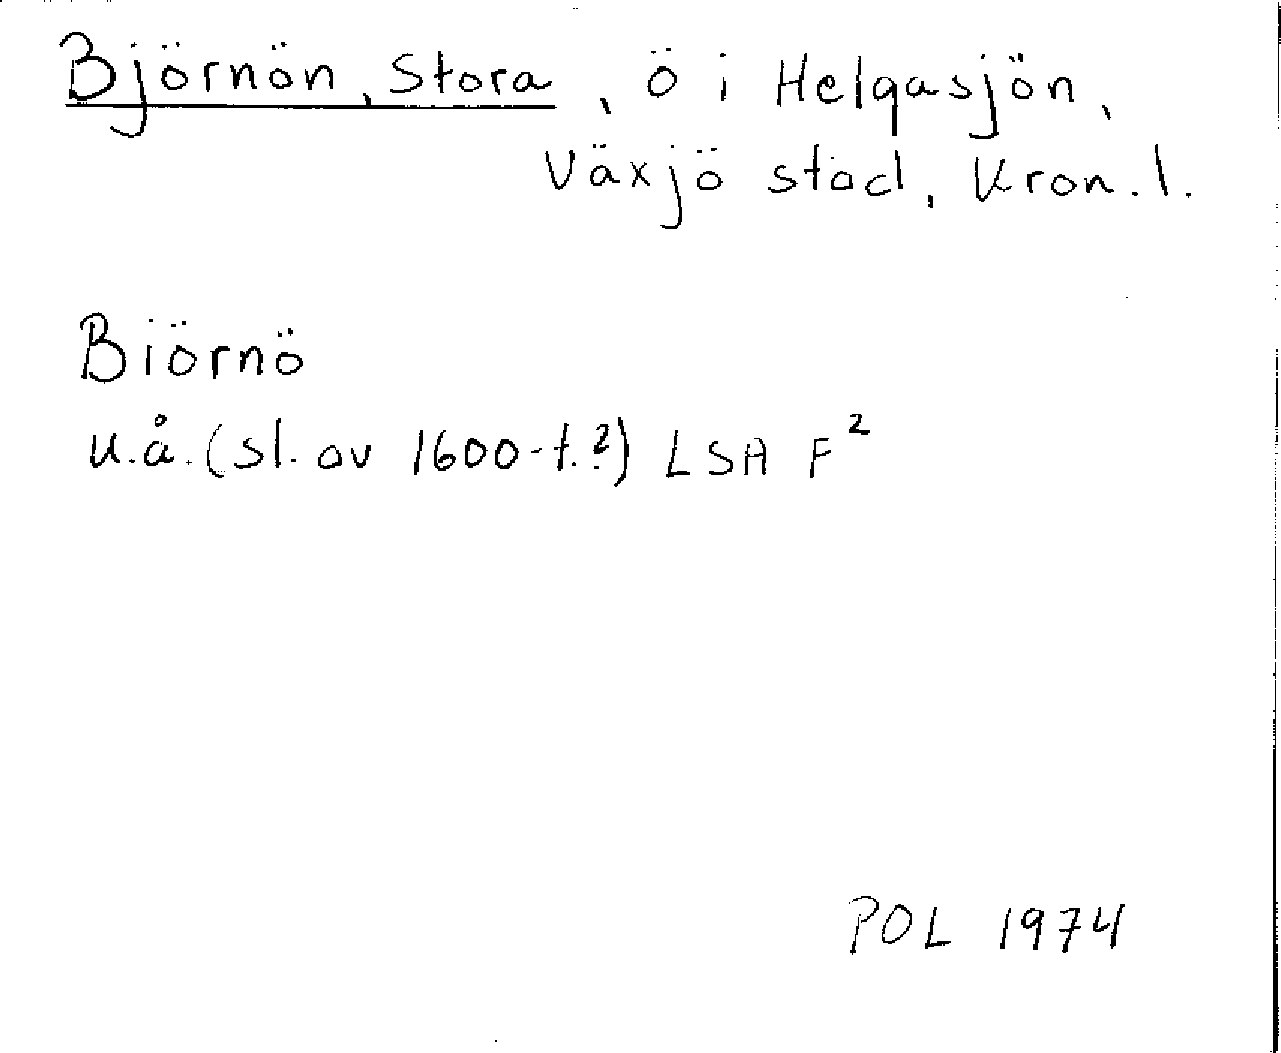 Björnön, Stora, ö i Helgasjön,
Växjö stad, Kron. l.
Biörnö
u.å. (sl. av 1600-t.?) LSA F²
POL 1974